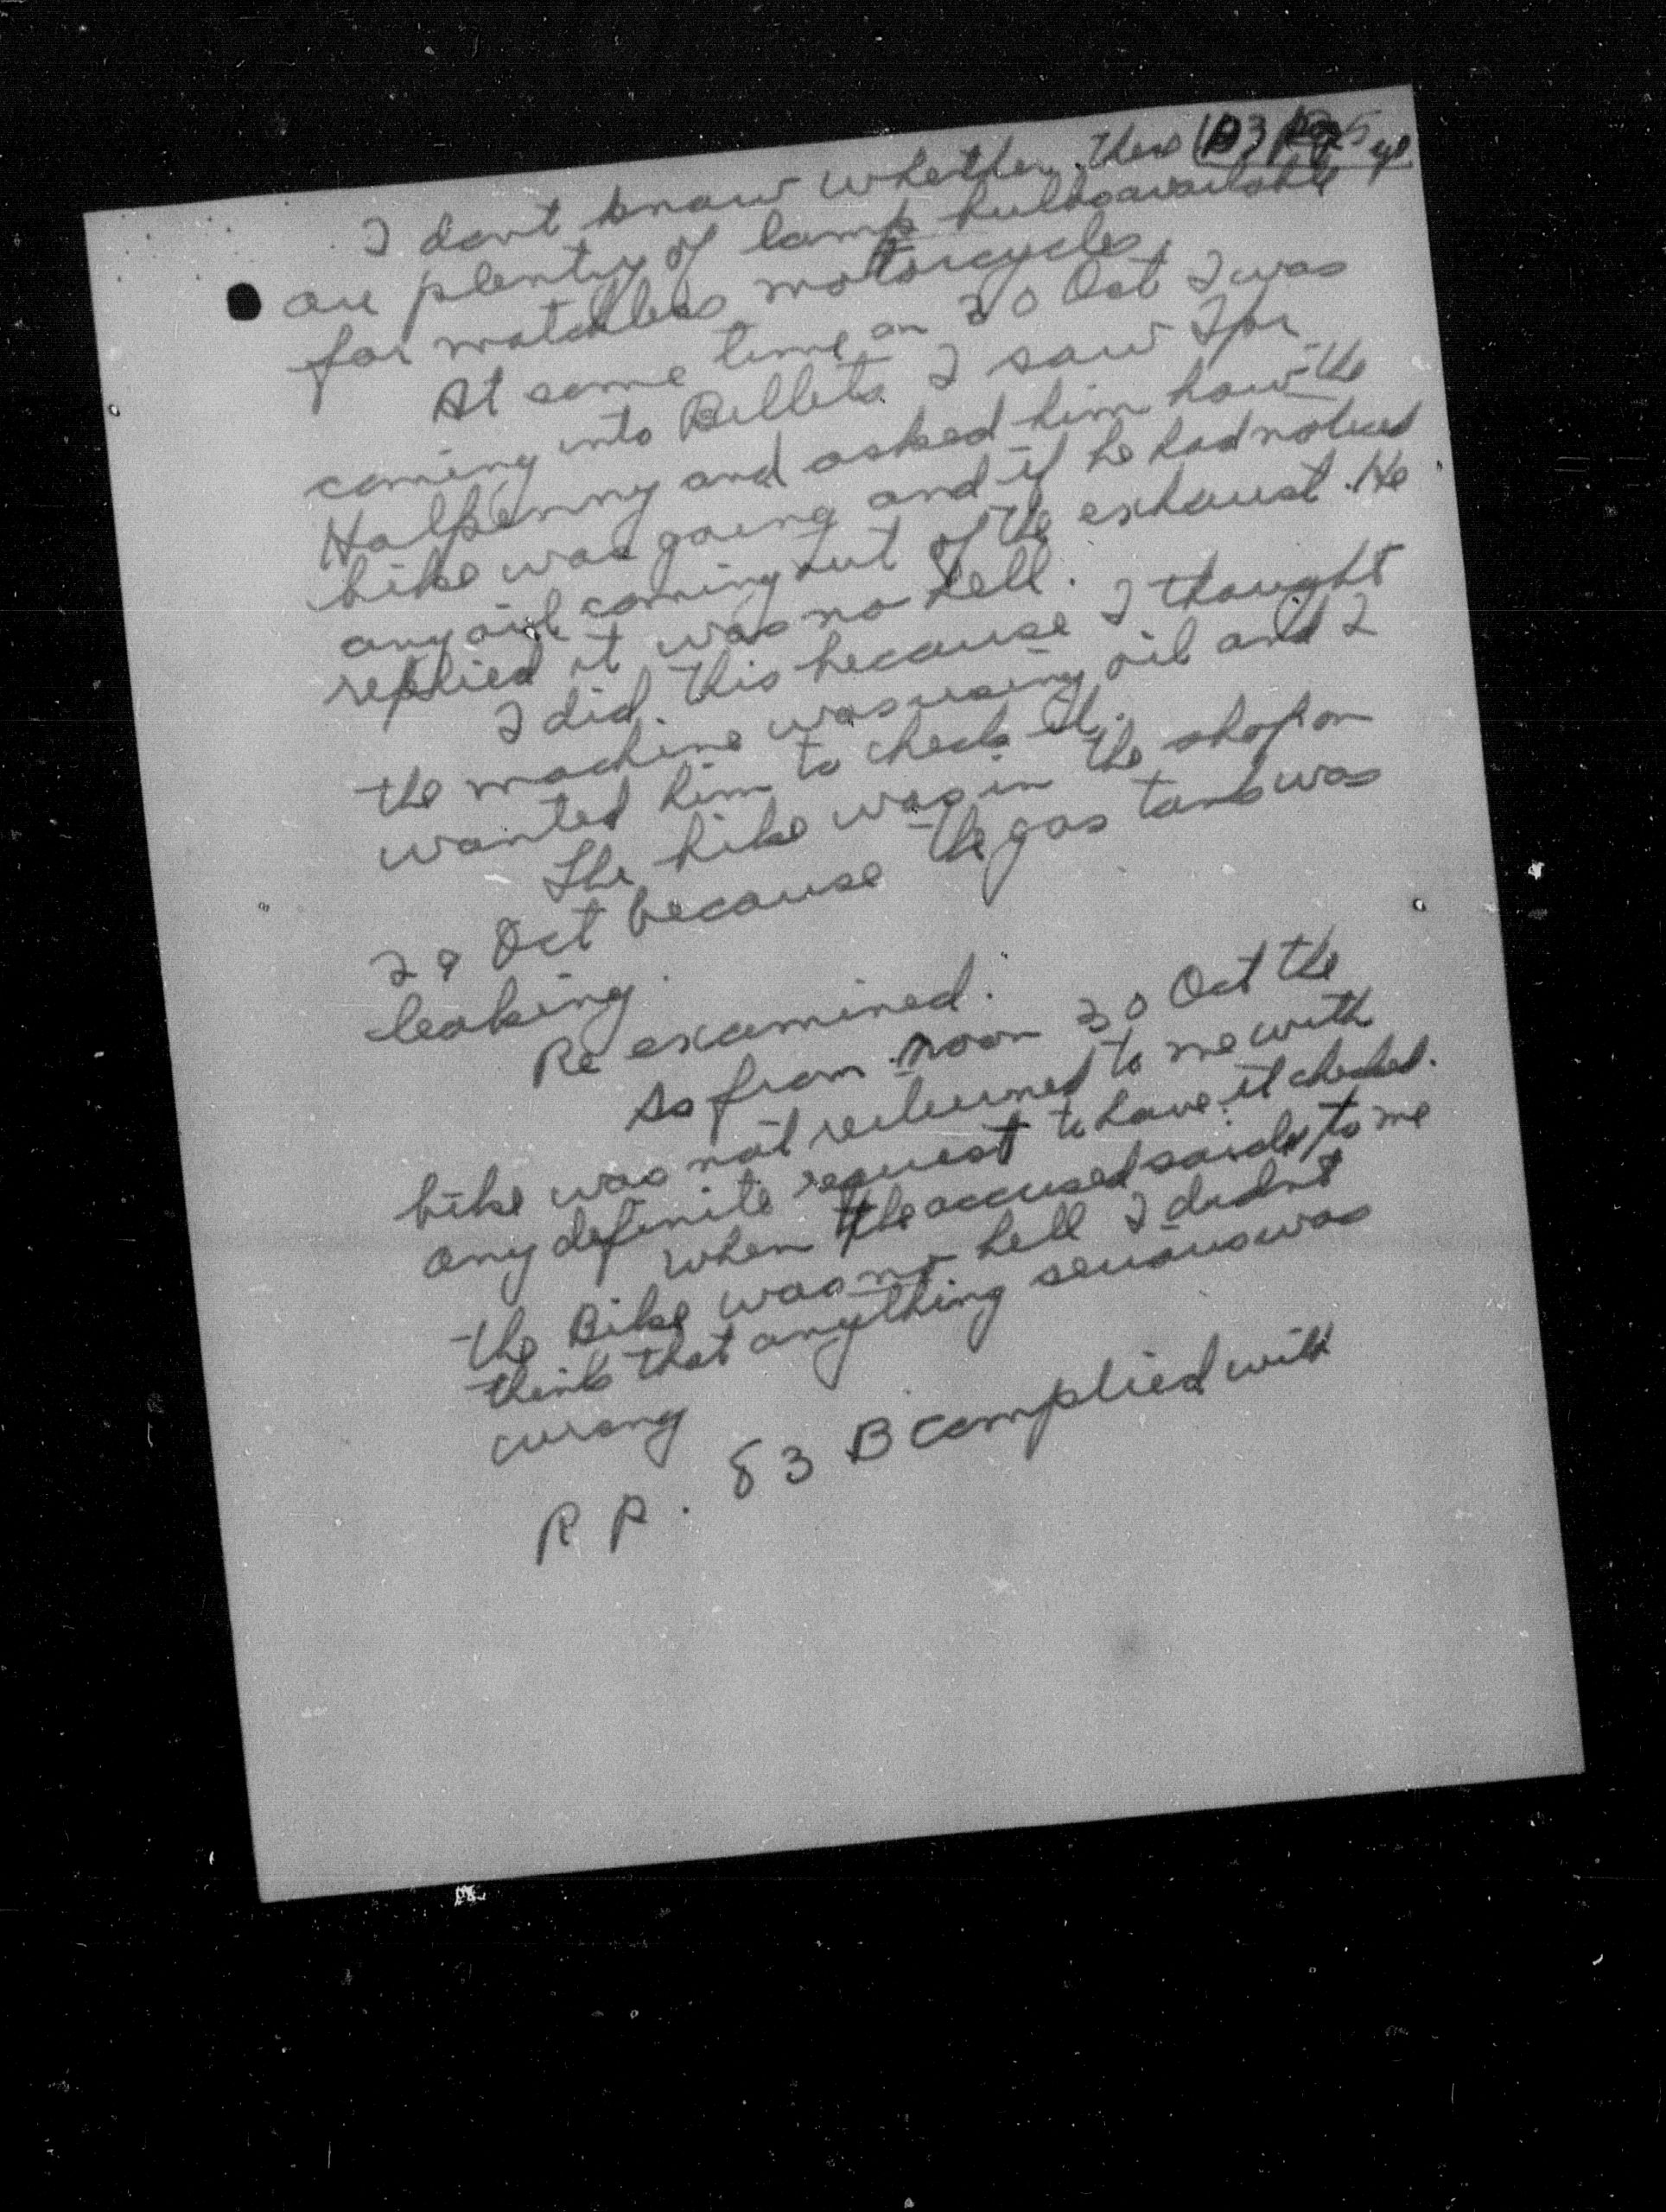 I dont know whether there
are plenty of lamp bulbs available
for matchless motorcycles.
At some time on 30 Oct I was
coming into Billets I saw Tpr
Halpenny and asked him how the
bike was going and if he had noticed
any oil coming out of the exhaust. He
replied it was no hell.
I did this because I thought
the machine was using oil and I
wanted him to check it.
The bike was in the shop on
29 Oct because the gas tank was
leaking.
Re examined.
As from noon 30 Oct the
bike was not returned to me with
any definite request to have it checked.
When the accused said to me
the Bike was no hell I didnt
think that anything serious was
wrong
R P. 83 B complied with